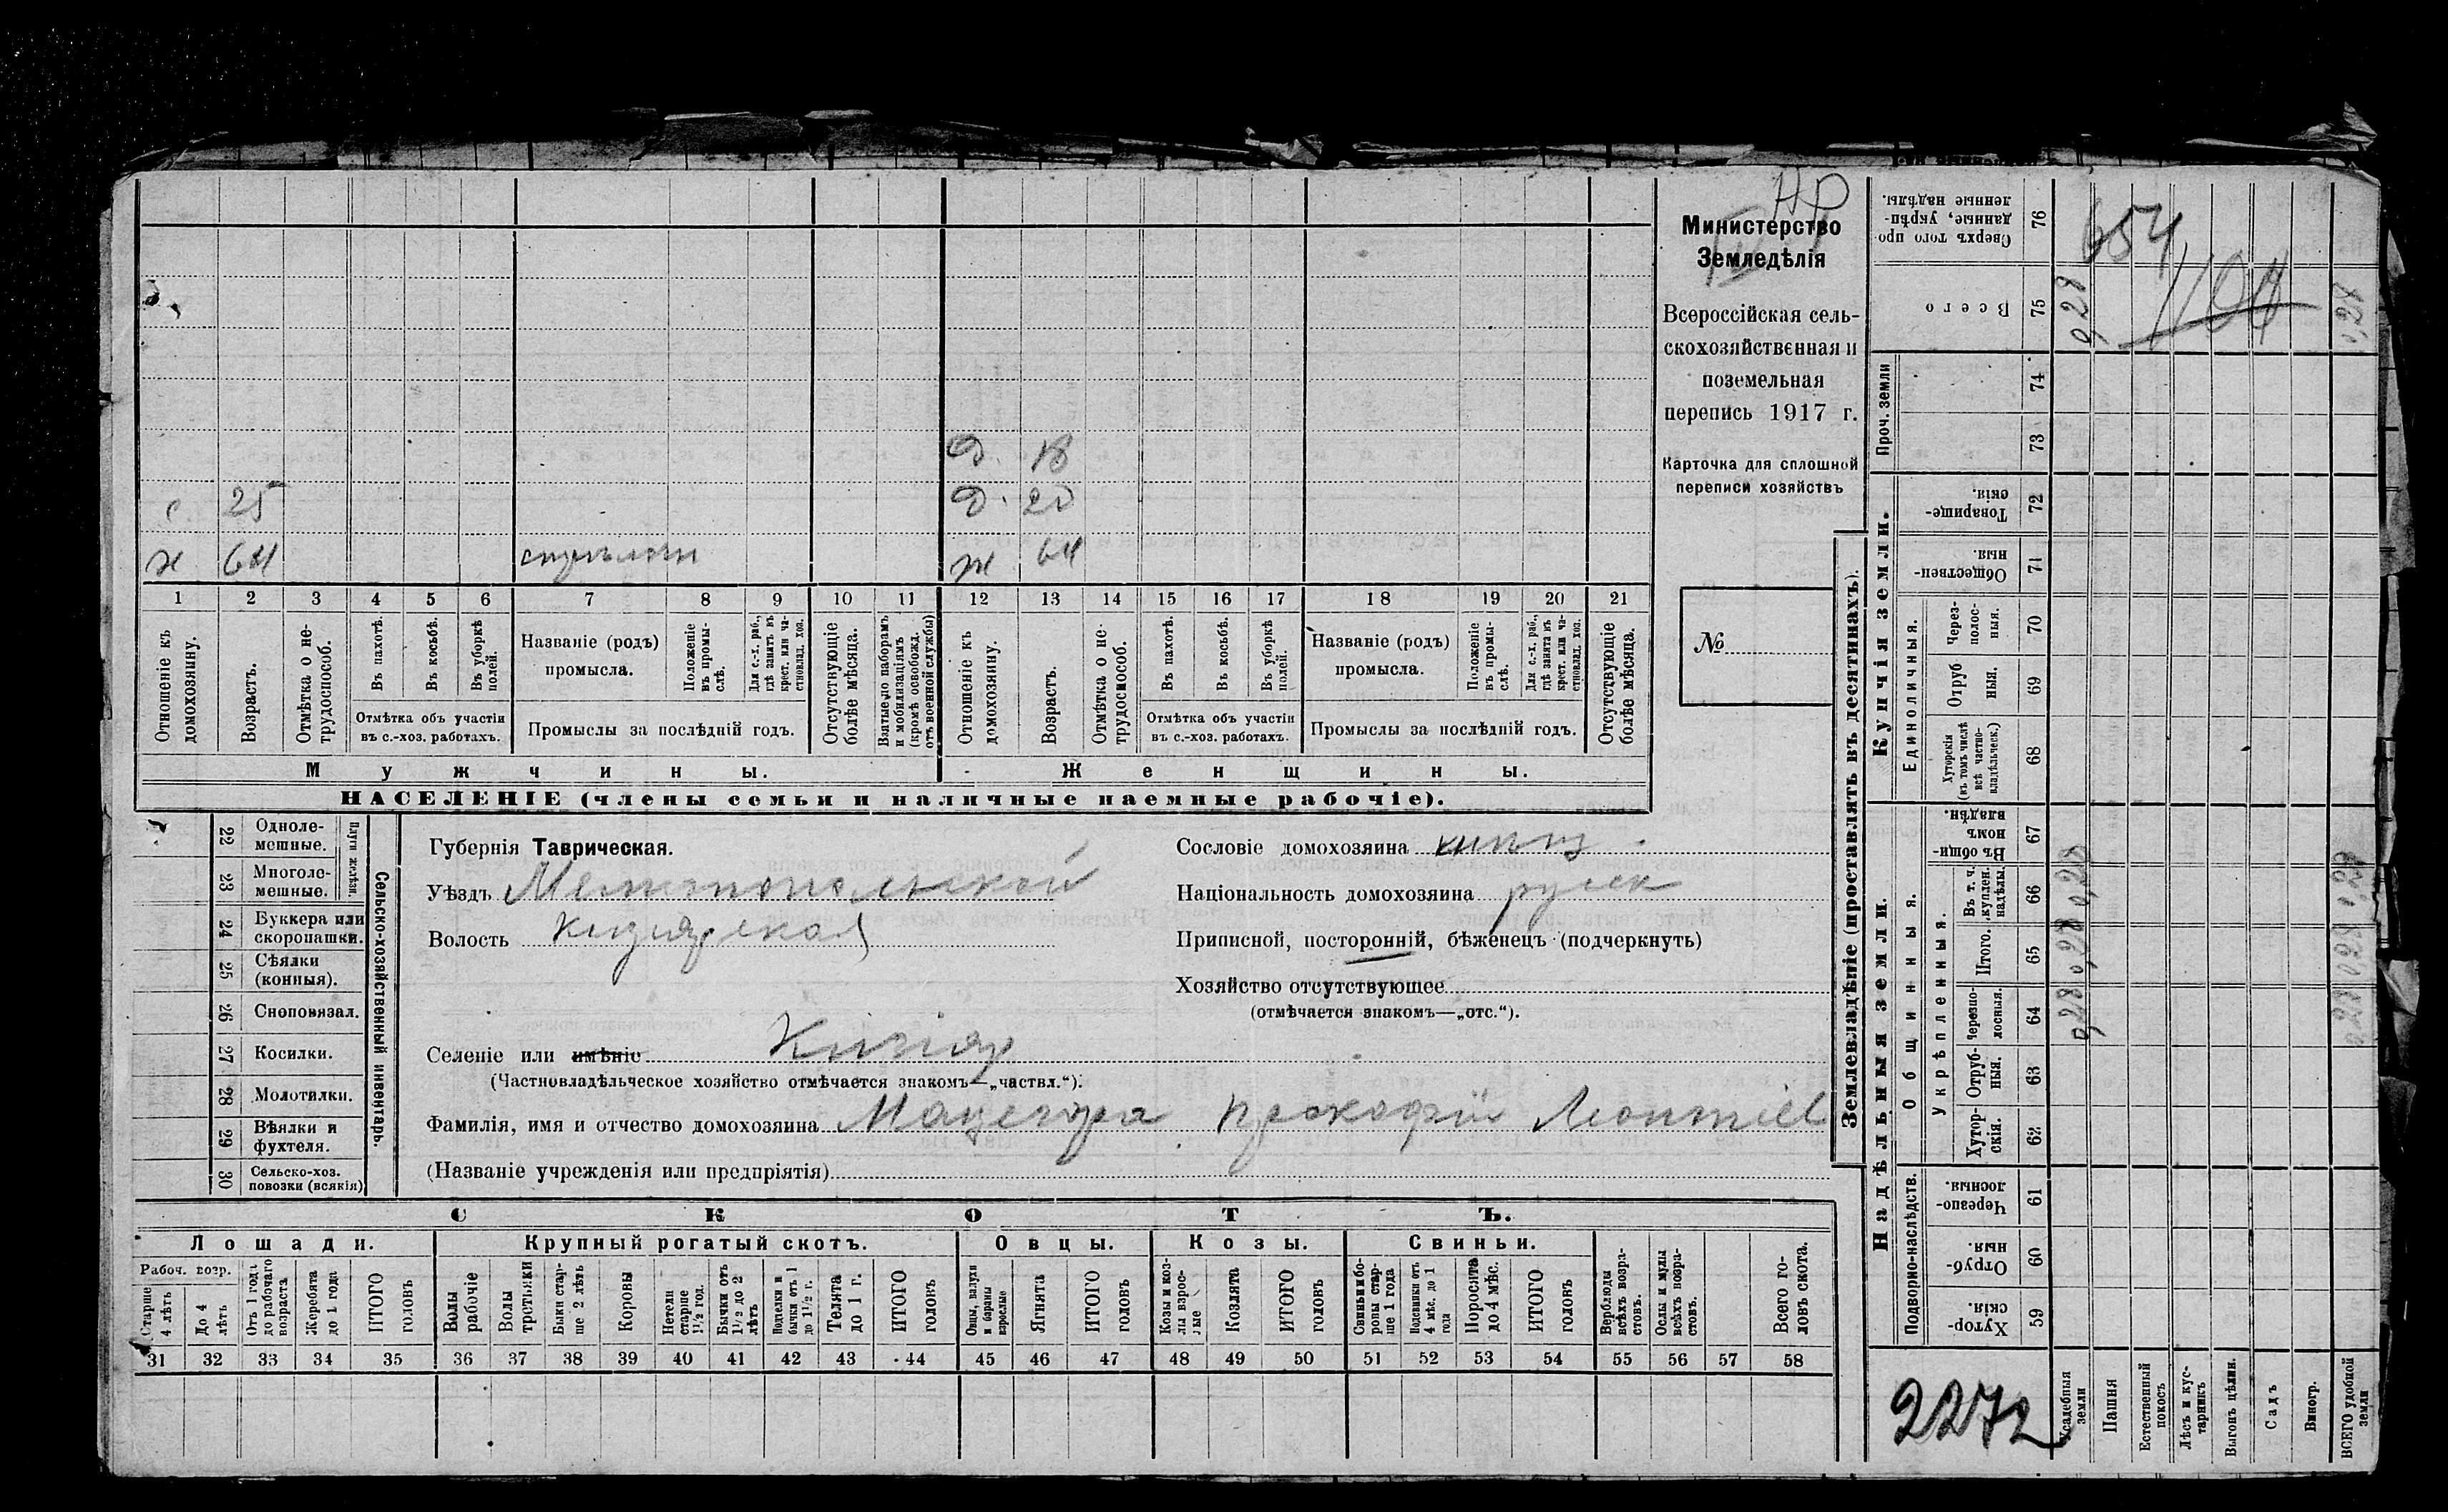 Д. 18
с 25 Д. 20
х 64 ж 64
1 2 3 4 5 6 7 8 9 10 11 12 13 14 15 16 17 18 19 20 21
Отношеніе къ домохозяину.
Возрастъ.
Отмѣтка о нетрудоспособ.
Въ пахотѣ.
Въ косьбѣ.
Въ уборкѣ полей.
Отмѣтка объ участіи
въ с.-хоз. работахъ.
Названіе (родъ)
промысла.
Положеніе въ промыслѣ.
Для с.-х. раб., гдѣ занятъ въ крест. или частновлад. хоз.
Промыслы за послѣдній годъ.
Отсутствующіе болѣе мѣсяца.
Взятые по наборамъ и мобилизаціямъ (кромѣ освобожд. отъ военной службы)
Отношеніе къ домохозяину.
Возрастъ.
Отмѣтка о нетрудоспособ.
Въ пахотѣ.
Въ косьбѣ.
Въ уборкѣ полей.
Отмѣтка объ участіи
въ с.-хоз. работахъ.
Названіе (родъ)
промысла.
Положеніе въ промыслѣ.
Для с.-х. раб., гдѣ занятъ въ крест. или частновлад. хоз.
Промыслы за послѣдній годъ.
Отсутствующіе болѣе мѣсяца.
Мужчины. Женщины.
НАСЕЛЕНІЕ (члены семьи и наличные наемные рабочіе).
Министерство
Земледѣлія
Всероссійская сель-
скохозяйственная и
поземельная
перепись 1917 г.
Карточка для сплошной
переписи хозяйствъ
№
22 Однолемешные.
23 Многолемешные.
Плуги желѣзн.
24 Буккера или скоропашки.
25 Сѣялки (конныя).
26 Сноповязал.
27 Косилки.
28 Молотилки.
29 Вѣялки и фухтеля.
30 Сельско-хоз. повозки (всякія)
Сельско-хозяйственный инвентарь.
Губернія Таврическая.
Уѣздъ Мелитопольской
Волость Кизиярская
Селеніе или имѣніе Кизияр
(Частновладѣльческое хозяйство отмѣчается знакомъ—„частвл.“).
Фамилія, имя и отчество домохозяина Мацегора Прокофій Леонтіев
(Названіе учрежденія или предпріятія)
Сословіе домохозяина
Національность домохозяина русск
Приписной, посторонній, бѣженецъ (подчеркнуть)
Хозяйство отсутствующее
(отмѣчается знакомъ—„отс.“).
СКОТЪ.
Лошади. Крупный рогатый скотъ. Овцы. Козы. Свиньи.
Рабоч. возр.
Старше 4 лѣтъ
До 4 лѣтъ
Отъ 1 года до рабочаго возраста
Жеребята до 1 года
ИТОГО головъ
Волы рабочіе
Волы третьяки
Быки старше 2 лѣтъ
Коровы
Нетели старше 1½ год.
Бычки отъ 1½ до 2 лѣтъ
Подтелки и бычки отъ 1 до 1½ г.
Телята до 1 г.
ИТОГО головъ
Овцы, валухи и бараны взрослые
Ягнята
ИТОГО головъ
Козы и козлы взрослые
Козлята
ИТОГО головъ
Свиньи и боровы старше 1 года
Подсвинки отъ 4 мѣс. до 1 года
Поросята до 4 мѣс.
ИТОГО головъ
Верблюды всѣхъ возрастовъ.
Ослы и мулы всѣхъ возрастовъ.
Всего головъ скота.
31 32 33 34 35 36 37 38 39 40 41 42 43 44 45 46 47 48 49 50 51 52 53 54 55 56 57 58
Землевладѣніе (проставлять въ десятинахъ).
Сверхъ того проданные, укрѣпленные надѣлы. 76
654
1104
Всего 75 0,28 0,28
Проч. земли
74
73
Купчія земли.
Товарищескія. 72
Общественныя. 71
Единоличныя.
Черезполосныя. 70
Отрубныя. 69
Хуторскія (въ томъ числѣ всѣ частновладѣльческ.) 68
Надѣльныя земли.
Общинныя.
Въ общинномъ владѣн. 67
Укрѣпленныя.
Въ т. ч. куплен. надѣлы. 66 0,28 0,28
Итого. 65 0,28 0,28
Черезполосныя. 64 0,28 0,28
Отрубныя. 63
Хуторскія. 62
Подворно-наслѣдств.
Черезполосныя. 61
Отрубныя. 60
Хуторскія. 59
2272
Усадебныя земли
Пашня
Естественный покосъ
Лѣсъ и кустарникъ
Выгонъ цѣлин.
Садъ
Виногр.
ВСЕГО удобной земли